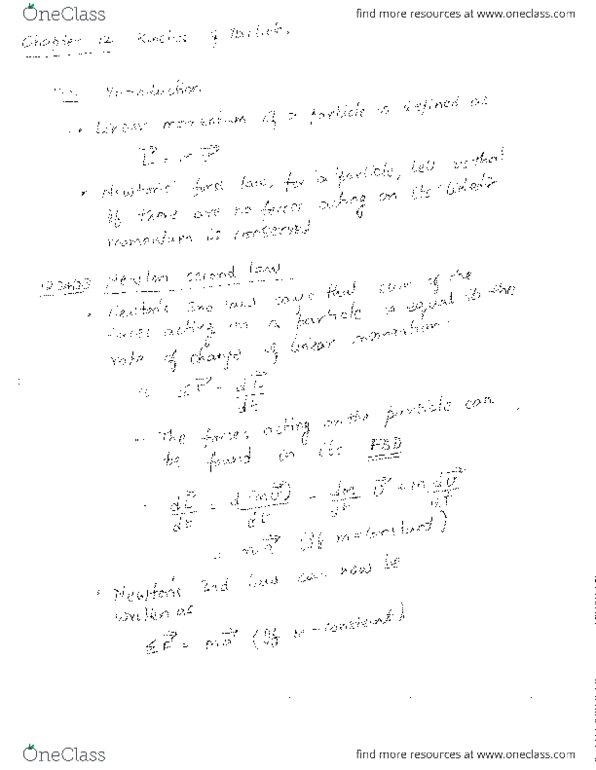 OneClass
find more resources at www.oneclass.com
Chapter 12 Kinetics of Particle.
Introduction
Linear momentum of a particle is defined as
Newton's first law, for a particle, tell us that
if there are no forces acting on its linear
momentum is conserved
12.2&12.3 Newton second law
Newton's 2nd law says that sum of the
forces acting on a particle is equal to the
rate of change of linear momentum.
ΣF⃗ = dL⃗/dt
The forces acting on the particle can
be found in its FBD
dL⃗/dt = d(mv⃗)/dt = dm/dt v⃗ + m dv⃗/dt
= ma⃗ (If m=constant)
Newton's 2nd law can now be
written as
ΣF⃗ = ma⃗ (If m=constant)
OneClass
find more resources at www.oneclass.com